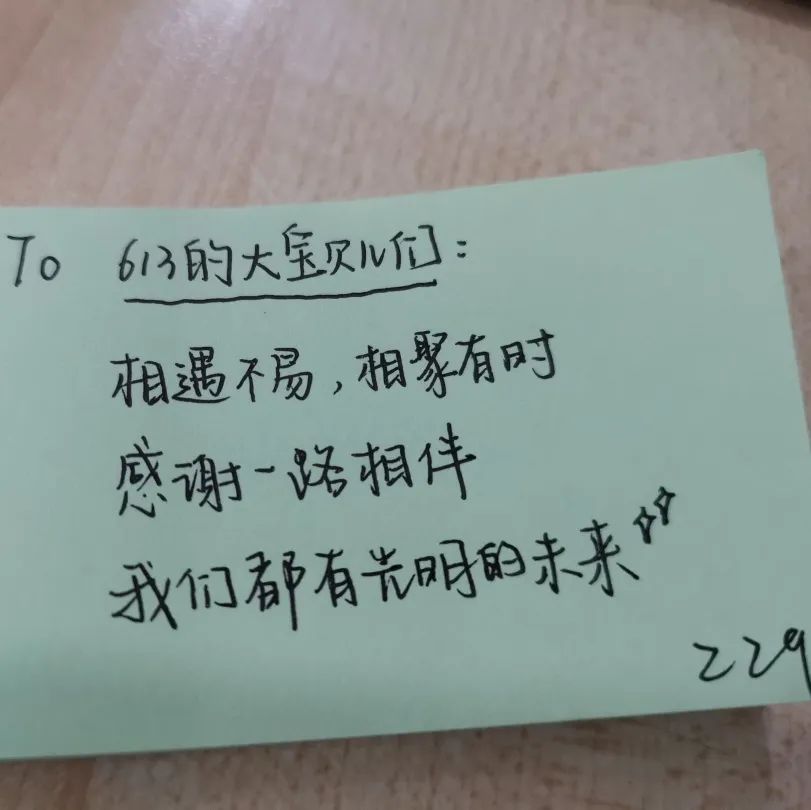 To 613的大宝贝儿们:
相遇不易,相聚有时
感谢一路相伴
我们都有光明的未来
229